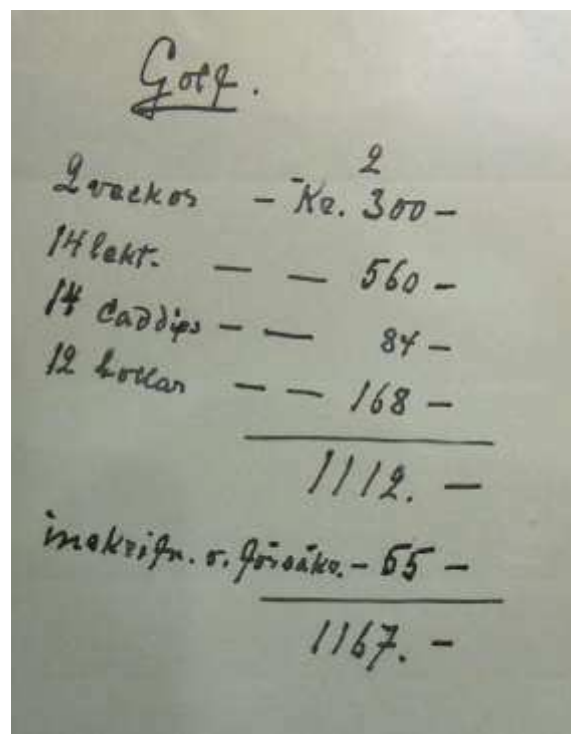 Golf.
2
2 veckor - Kr. 300 -
14 lekt. - - 560 -
14 Caddips - - 84 -
12 bollar - - 168 -
1112. -
inskrifn. o. försäkr. - 55 -
1167. -